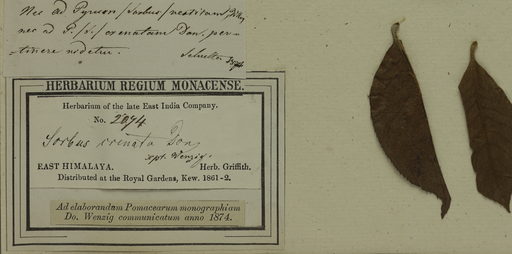 Nec ad Pyrum /Sorbus/ vestitam,
nec ad P./S./ crenatam, Don, per-
tinere videtur.
HERBARIUM REGIUM MONACENSE.
Herbarium of the late East India Company.
No. 2074
Sorbus crenata Don,
spt. Wenzig.
EAST HIMALAYA. Herb. Griffith.
Distributed at the Royal Gardens, Kew. 1861-2.
Ad elaborandam Pomacearum monographiam
Do. Wenzig communicatum anno 1874.